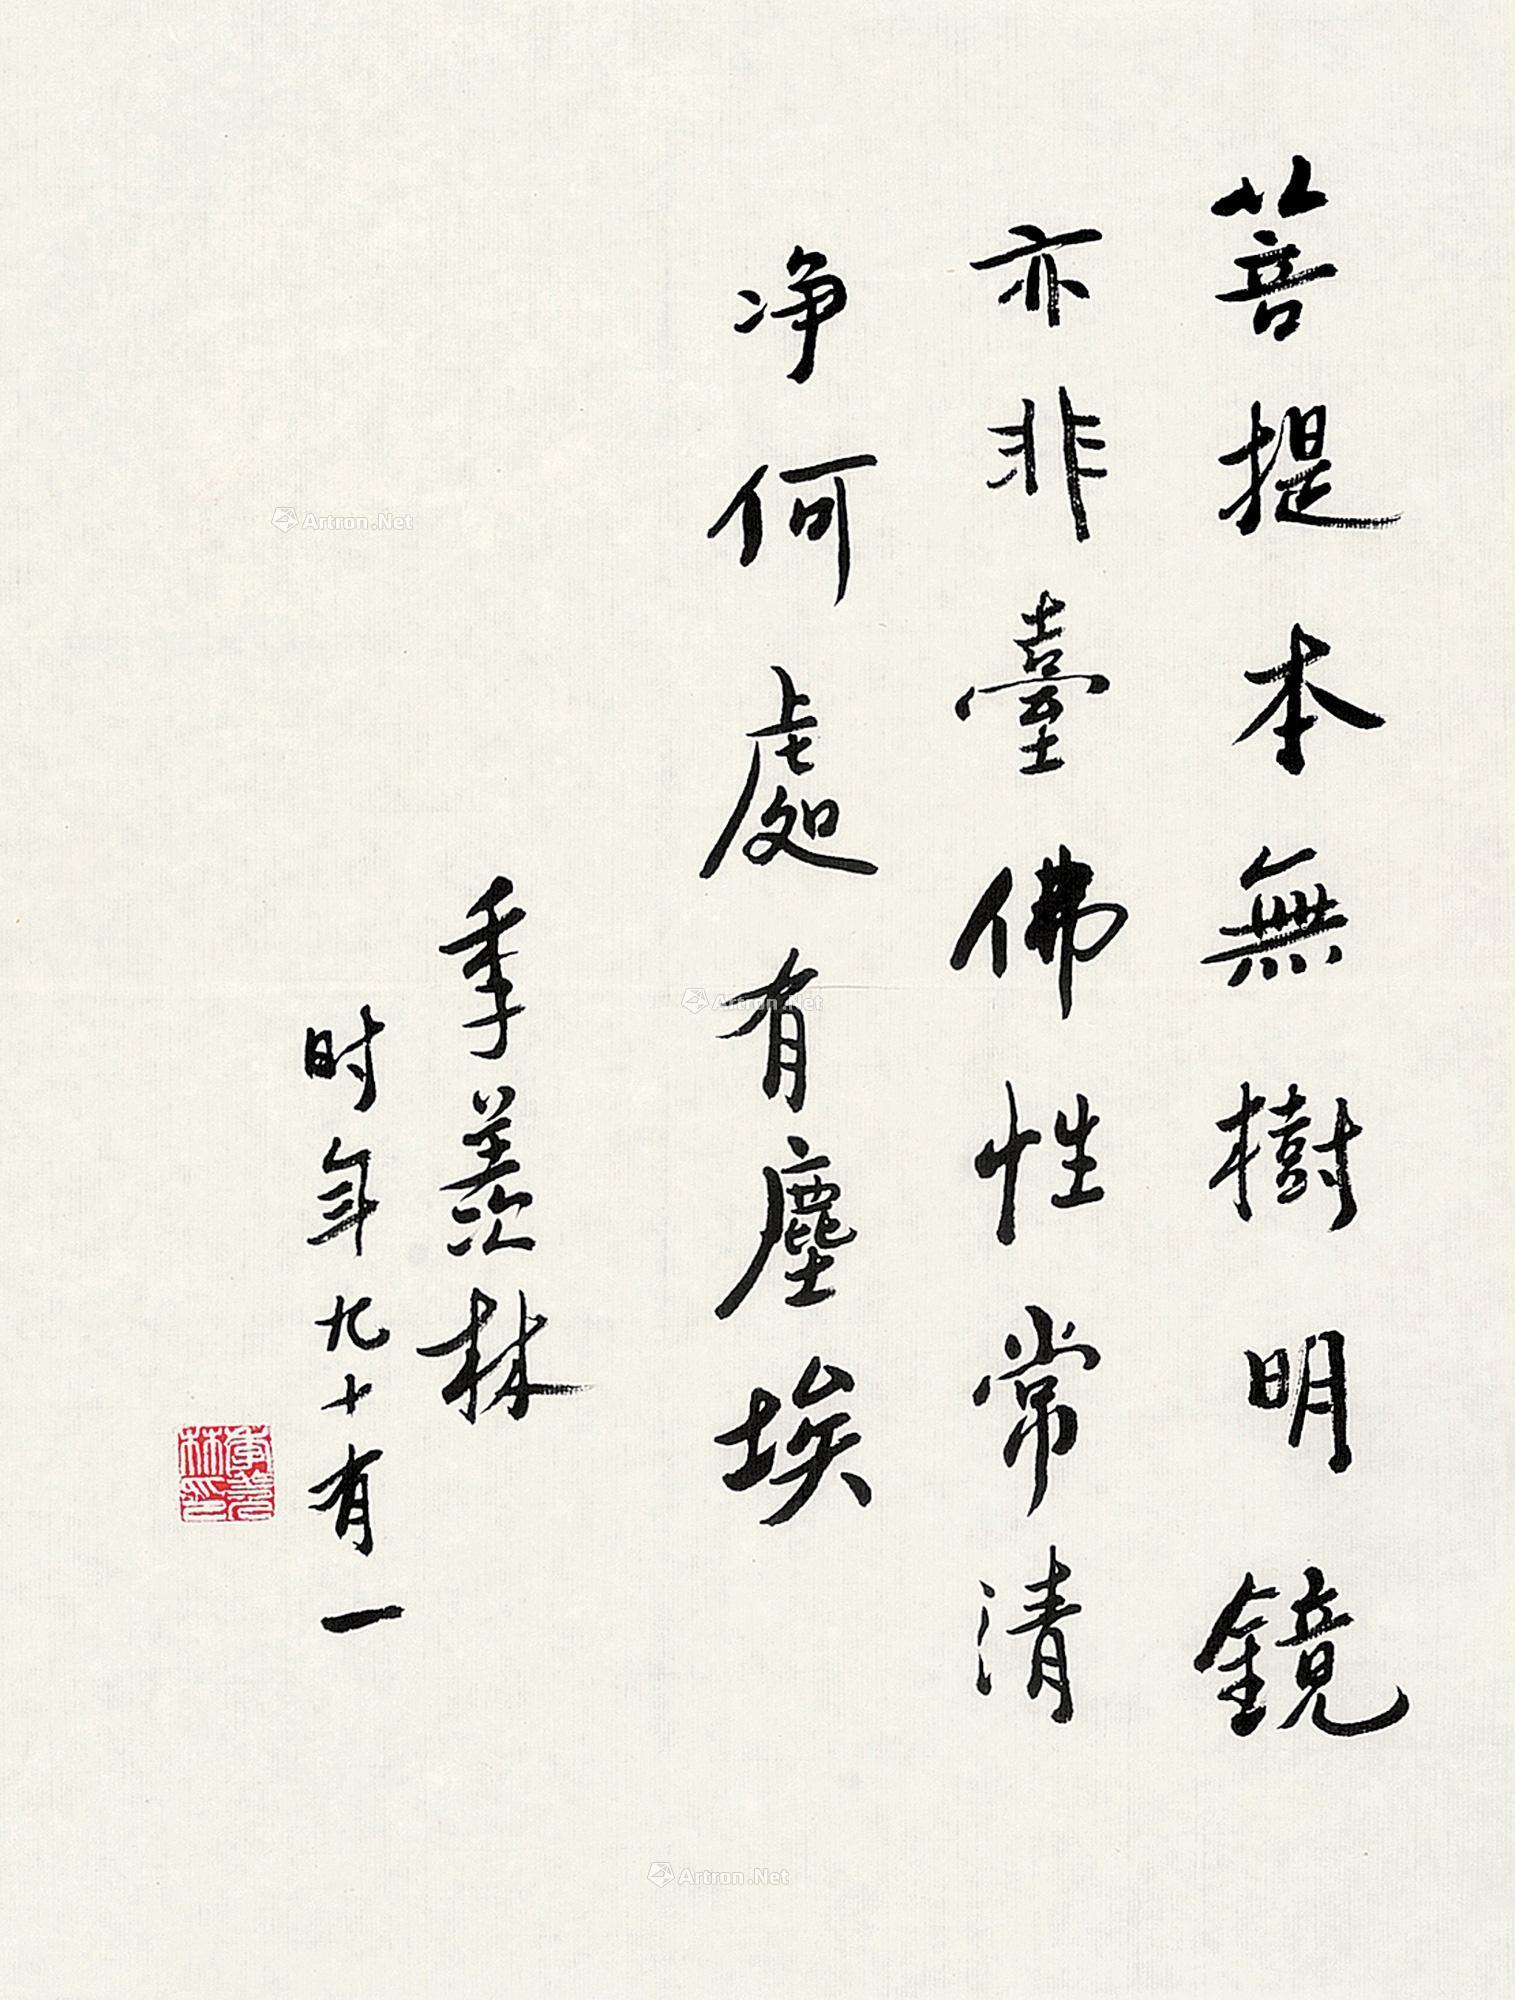 菩提本無樹明鏡
亦非臺佛性常清
净何處有塵埃
季羡林
时年九十有一
季羡林印
Artron.Net
Artron.Net
Artron.Net